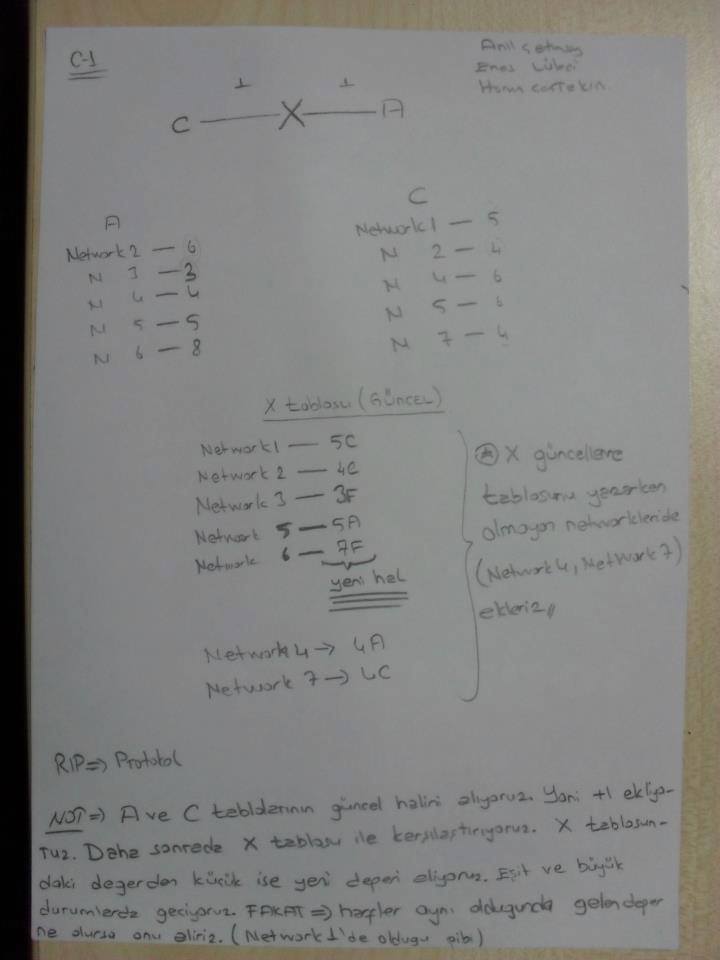 C-1
Anıl
Enes
1 1
C X A
A
Network 2 — 6
N 3 — 3
N 4 — 4
N 5 — 5
N 6 — 8
C
Network 1 — 5
N 2 — 4
N 4 — 6
N 5 — 6
N 7 — 4
X tablosu (GÜNCEL)
Network 1 — 5C
Network 2 — 4C
Network 3 — 3F
Network 5 — 5A
Network 6 — 7F
yeni hal
Network 4 → 4A
Network 7 → 4C
* X güncelleme
tablosunu yazarken
olmayan networkleride
(Network 4, Network 7)
ekleriz,,
RIP => Protokol
NOT => A ve C tablolarının güncel halini alıyoruz. Yani +1 ekliyo-
ruz. Daha sonrada X tablosu ile karşılaştırıyoruz. X tablosun-
daki değerden küçük ise yeni değeri alıyoruz. Eşit ve büyük
durumlarda geçiyoruz. FAKAT => harfler aynı olduğunda gelen değer
ne olursa onu alırız. (Network 1'de olduğu gibi)